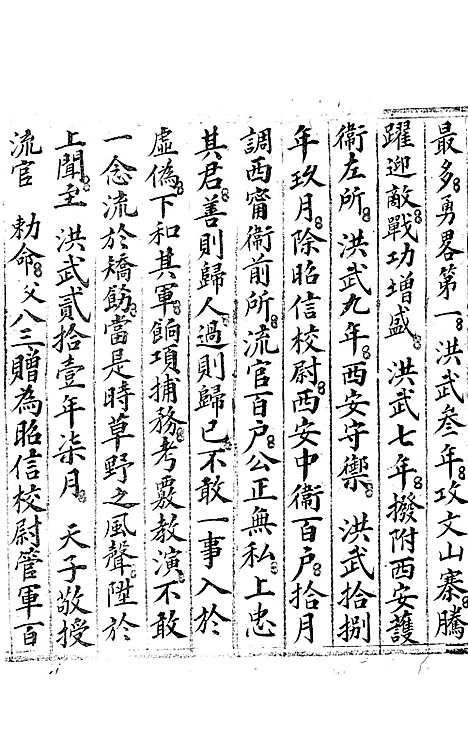 最多勇畧第一洪武叁年攻文山寨騰
躍迎敵戰功增盛 洪武七年撥附西安護
衛左所 洪武九年西安守禦 洪武拾捌
年玖月除昭信校尉西安中衞百戶拾月
調西甯衞前所流官百戶公正無私上忠
其君善則歸人過則歸已不敢一事入於
虛僞下和其軍餉項捕務考覈教演不敢
一念流於矯飭當是時草野之風聲陞於
上聞至 洪武貳拾壹年柒月 天子敬授
流官 勅命父八三贈為昭信校尉管軍百